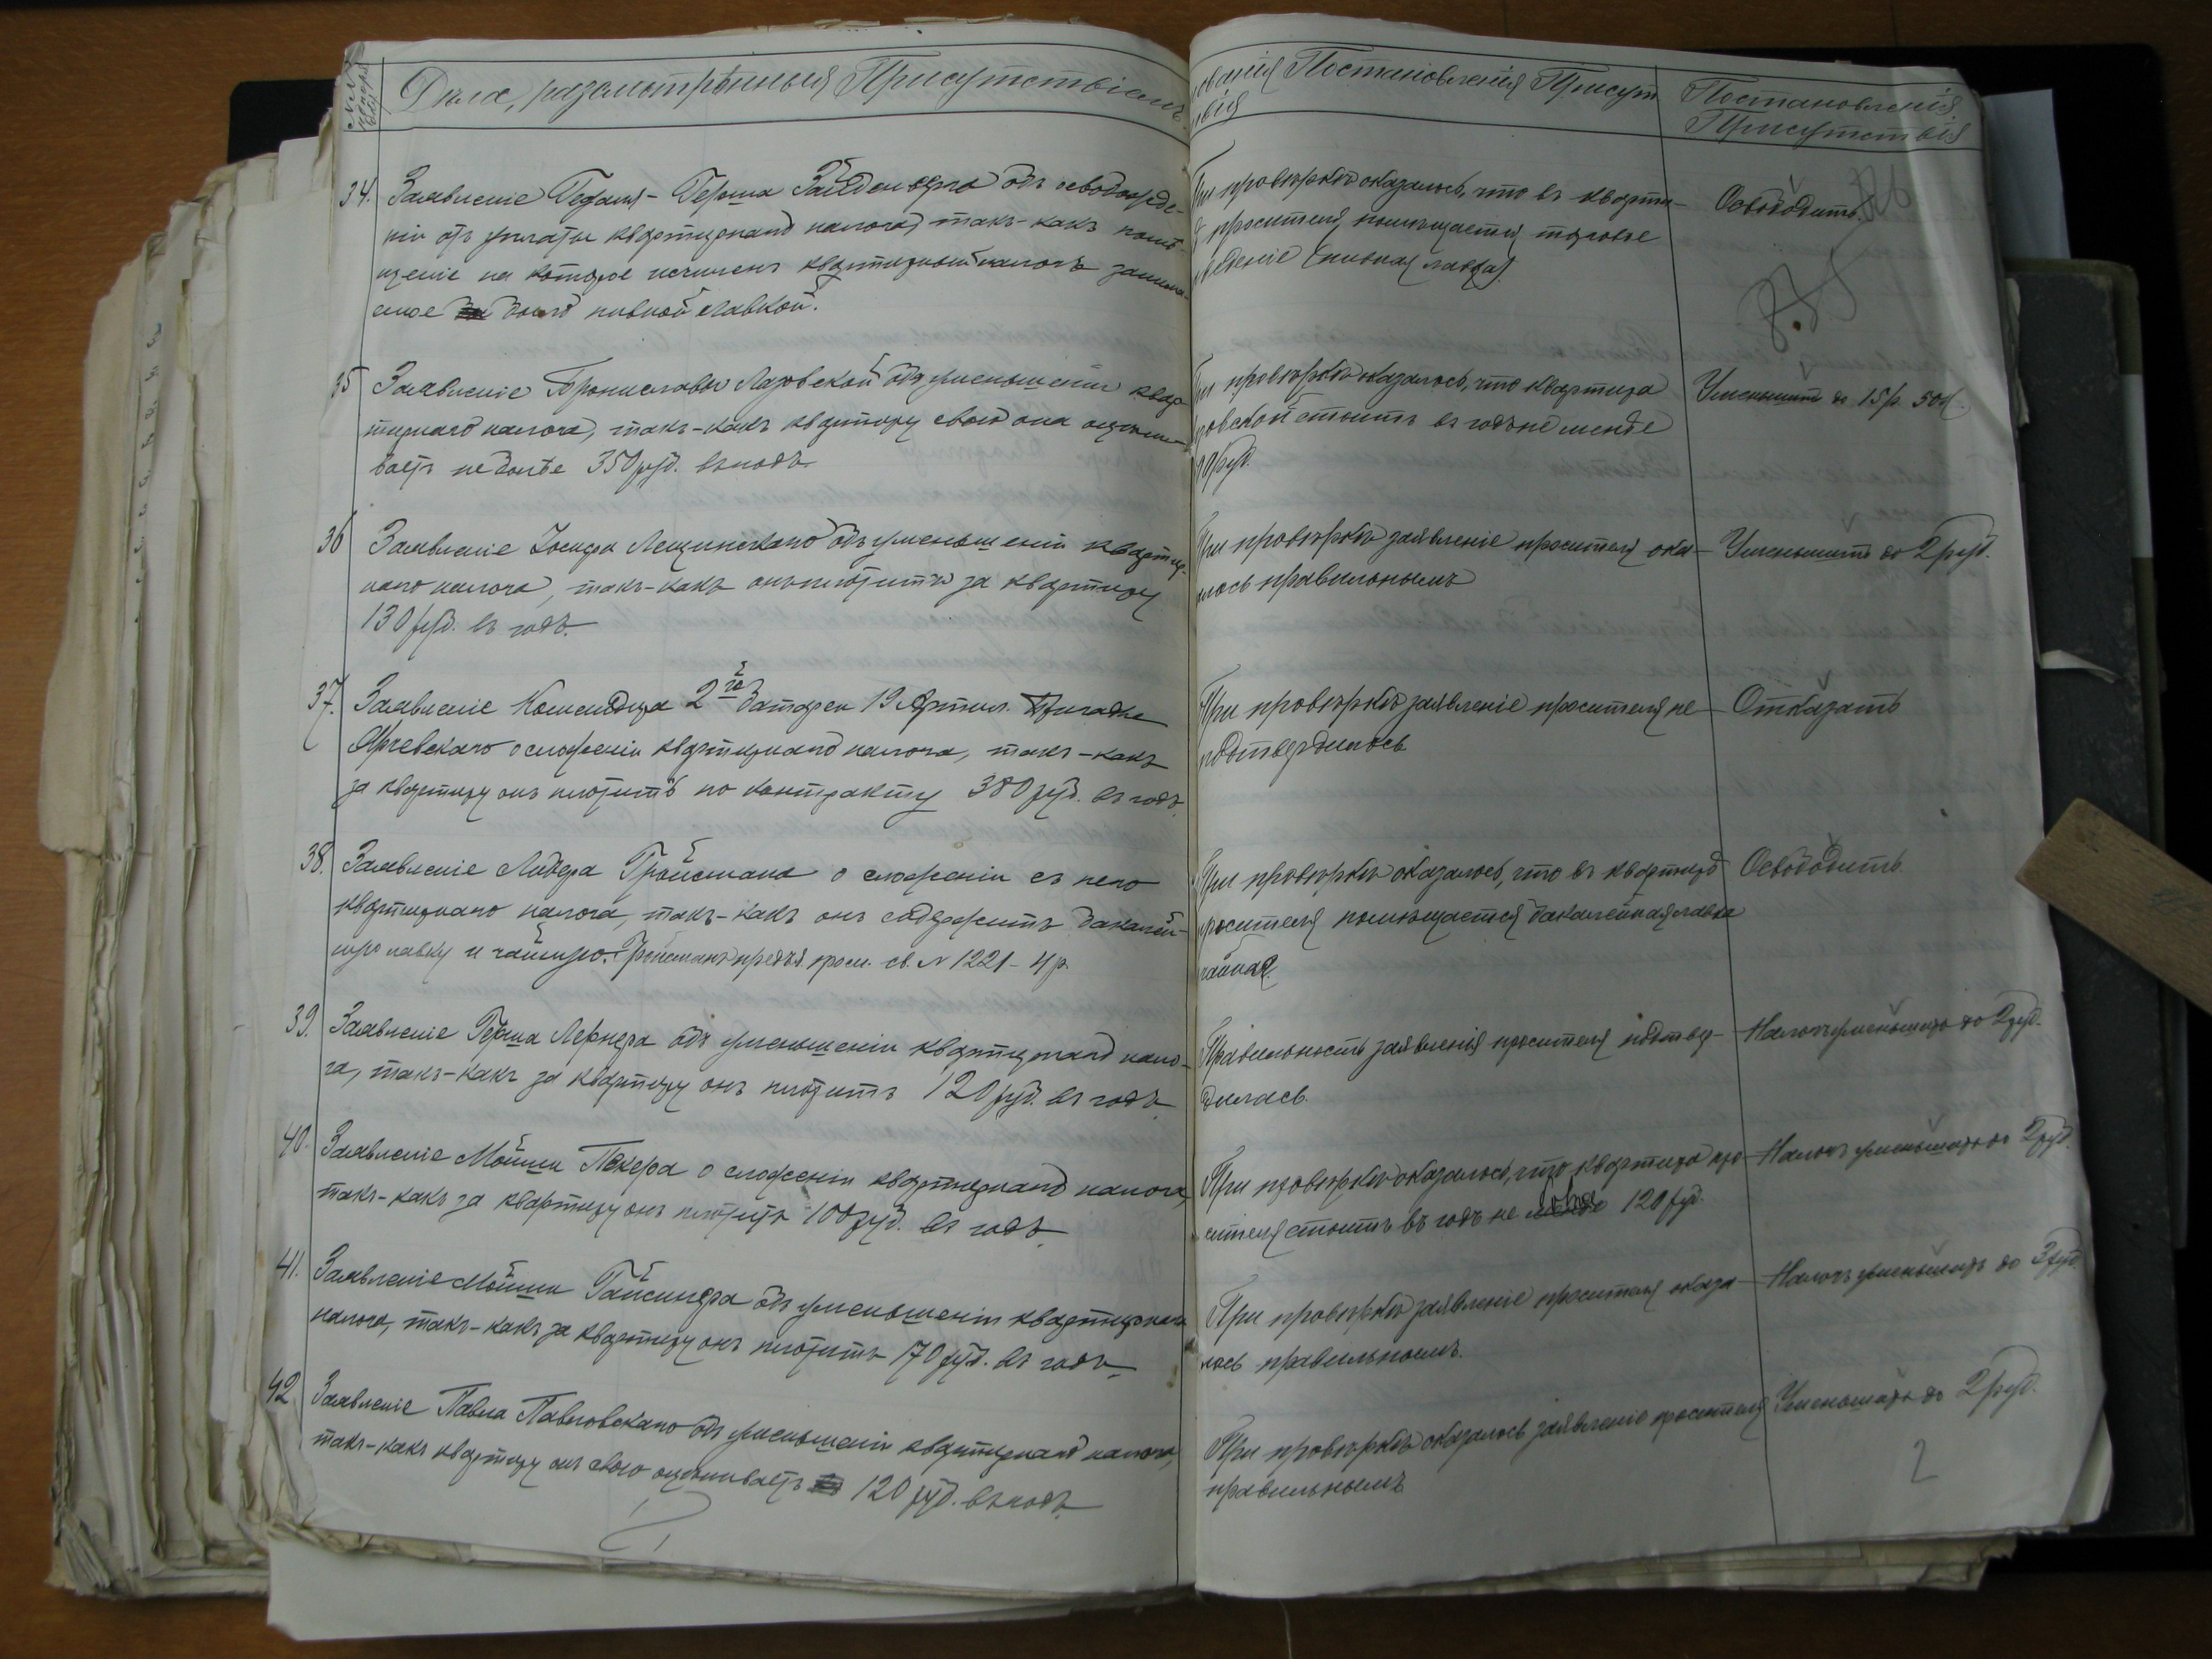 №№
Дѣла, разсмотрѣнныя Присутствіемъ
ованія Постановленія Присут
ствія
Постановленія
Присутствія
34.
Заявленіе Гедаля-Герша Зайденберга объ освобожде-
ніи отъ уплаты квартирнаго налога, такъ-какъ помѣ-
щеніе на которое исчисленъ квартирный налогъ занима-
емое было пивной лавкой.
При провѣркѣ оказалось, что въ кварти-
просителя помѣщается торговое
заведеніе (пивная лавка)
Освободить
35
Заявленіе Брониславы Лазовской объ уменьшеніи квар-
тирнаго налога, такъ-какъ квартиру свою она оцѣни-
ваетъ не болѣе 350 руб. въ годъ.
При провѣркѣ оказалось, что квартира
зовской стоитъ въ годъ не менѣе
руб.
Уменьшить до 15 р. 50 к.
36
Заявленіе Іосифа Лещинскаго объ уменьшеніи квартир-
наго налога, такъ-какъ онъ платитъ за квартиру
130 руб. въ годъ.
При провѣркѣ заявленіе просителя ока-
лось правильнымъ
Уменьшить до 2 руб.
37.
Заявленіе Командира 2й батареи 19 Артил. Бригады
Ярчевскаго о сложеніи квартирнаго налога, такъ-какъ
за квартиру онъ платитъ по контракту 380 руб. въ годъ.
При провѣркѣ заявленіе просителя не
подтвердилось
Отказать
38.
Заявленіе Лидера Гройсмана о сложеніи съ него
квартирнаго налога, такъ-какъ онъ содержитъ бакалей-
ную лавку и чайную. Гройсманъ предъя. пром. св. № 1221 - 4 р.
При провѣркѣ оказалось, что въ квартирѣ
просителя помѣщается бакалейная лавка
чайная.
Освободить.
39.
Заявленіе Герша Лернера объ уменьшеніи квартирнаго нало-
га, такъ-какъ за квартиру онъ платитъ 120 руб. въ годъ.
Правильность заявленія просителя подтвер-
дилась.
Налогъ уменьшить до 2 руб.
40.
Заявленіе Мойши Пекера о сложеніи квартирнаго налога,
такъ-какъ за квартиру онъ платитъ 100 руб. въ годъ.
При провѣркѣ оказалось, что квартира про-
сителя стоитъ въ годъ не менѣе 120 руб.
Налогъ уменьшить до 2 руб.
41.
Заявленіе Мойши Гайсинера объ уменьшеніи квартирнаго
налога, такъ-какъ за квартиру онъ платитъ 170 руб. въ годъ.
При провѣркѣ заявленіе просителя оказа-
лось правильнымъ.
Налогъ уменьшить до 3 руб.
42
Заявленіе Павла Павловскаго объ уменьшеніи квартирнаго налога,
такъ-какъ квартиру онъ свою оцѣниваетъ 120 руб. въ годъ.
При провѣркѣ оказалось заявленіе просителя
правильнымъ
Уменьшить до 2 руб.
2